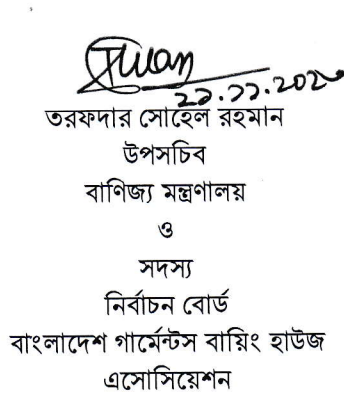 তরফদার সোহেল রহমান
উপসচিব
বাণিজ্য মন্ত্রণালয়
ও
সদস্য
নির্বাচন বোর্ড
বাংলাদেশ গার্মেন্টস বায়িং হাউজ
এসোসিয়েশন